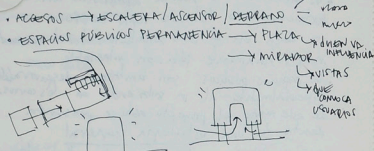 • ACCESOS → ESCALERA/ASCENSOR/
nuevo
• ESPACIOS PÚBLICOS PERMANENCIA → PLAZA
→ QUIEN VA
INFLUENCIA
→ MIRADOR
→ VISTAS
→ QUE
USUARIOS